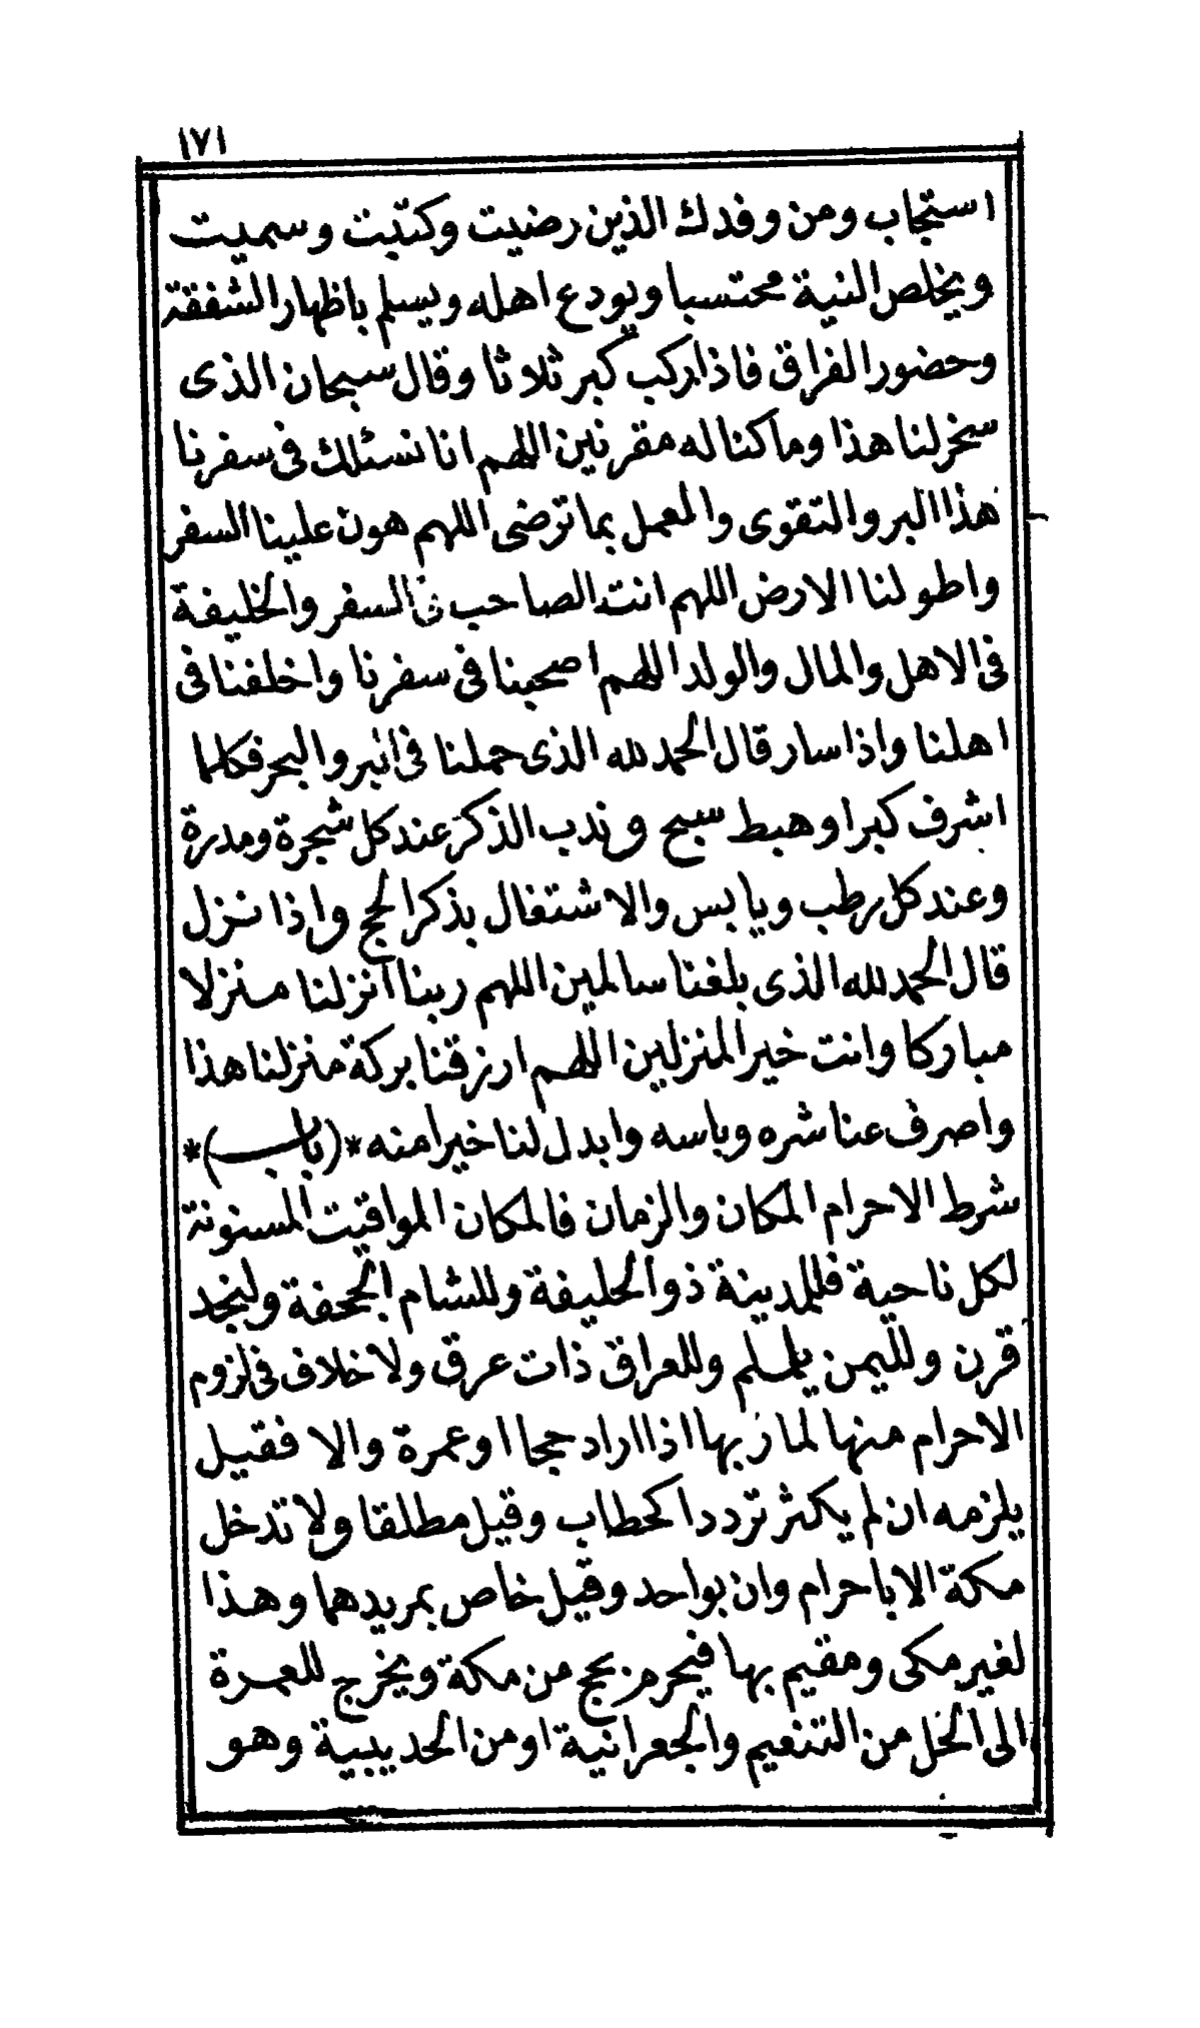 ١٧١
استجاب ومن وفدك الذين رضيت وكتبت وسميت
ويخلص النية محتسبا ويودع اهله ويسلم باظهار الشفقة
وحضور الفراق فاذا ركب كبر ثلاثا وقال سبحان الذى
سخر لنا هذا وما كنا له مقرنين اللهم انا نسئلك فى سفرنا
هذا البر والتقوى والعمل بما ترضى اللهم هون علينا السفر
واطو لنا الارض اللهم انت الصاحب فى السفر والخليفة
فى الاهل والمال والولد اللهم اصحبنا فى سفرنا واخلفنا فى
اهلنا واذا سار قال الحمد لله الذى حملنا فى البر والبحر فكلما
اشرف كبر او هبط سبح وندب الذكر عند كل شجرة ومدرة
وعند كل رطب ويابس والاشتغال بذكر الحج واذا نزل
قال الحمد لله الذى بلغنا سالمين اللهم ربنا انزلنا منزلا
مباركا وانت خير المنزلين اللهم ارزقنا بركة منزلنا هذا
واصرف عنا شره وباسه وابدل لنا خيرا منه *(باب)*
شرط الاحرام المكان والزمان فالمكان المواقيت المسنونة
لكل ناحية فللمدينة ذو الحليفة وللشام الجحفة ولنجد
قرن ولليمن يلملم وللعراق ذات عرق ولا خلاف فى لزوم
الاحرام منها لمار بها اذا اراد حجا او عمرة والا فقيل
يلزمه ان لم يكثر تردد الحطاب وقيل مطلقا ولا تدخل
مكة الا باحرام وان بواحد وقيل خاص بمريدهما وهذا
لغير مكى ومقيم بها فيحرم بحج من مكة ويخرج للعمرة
الى الحل من التنعيم والجعرانية او من الحديبية وهو